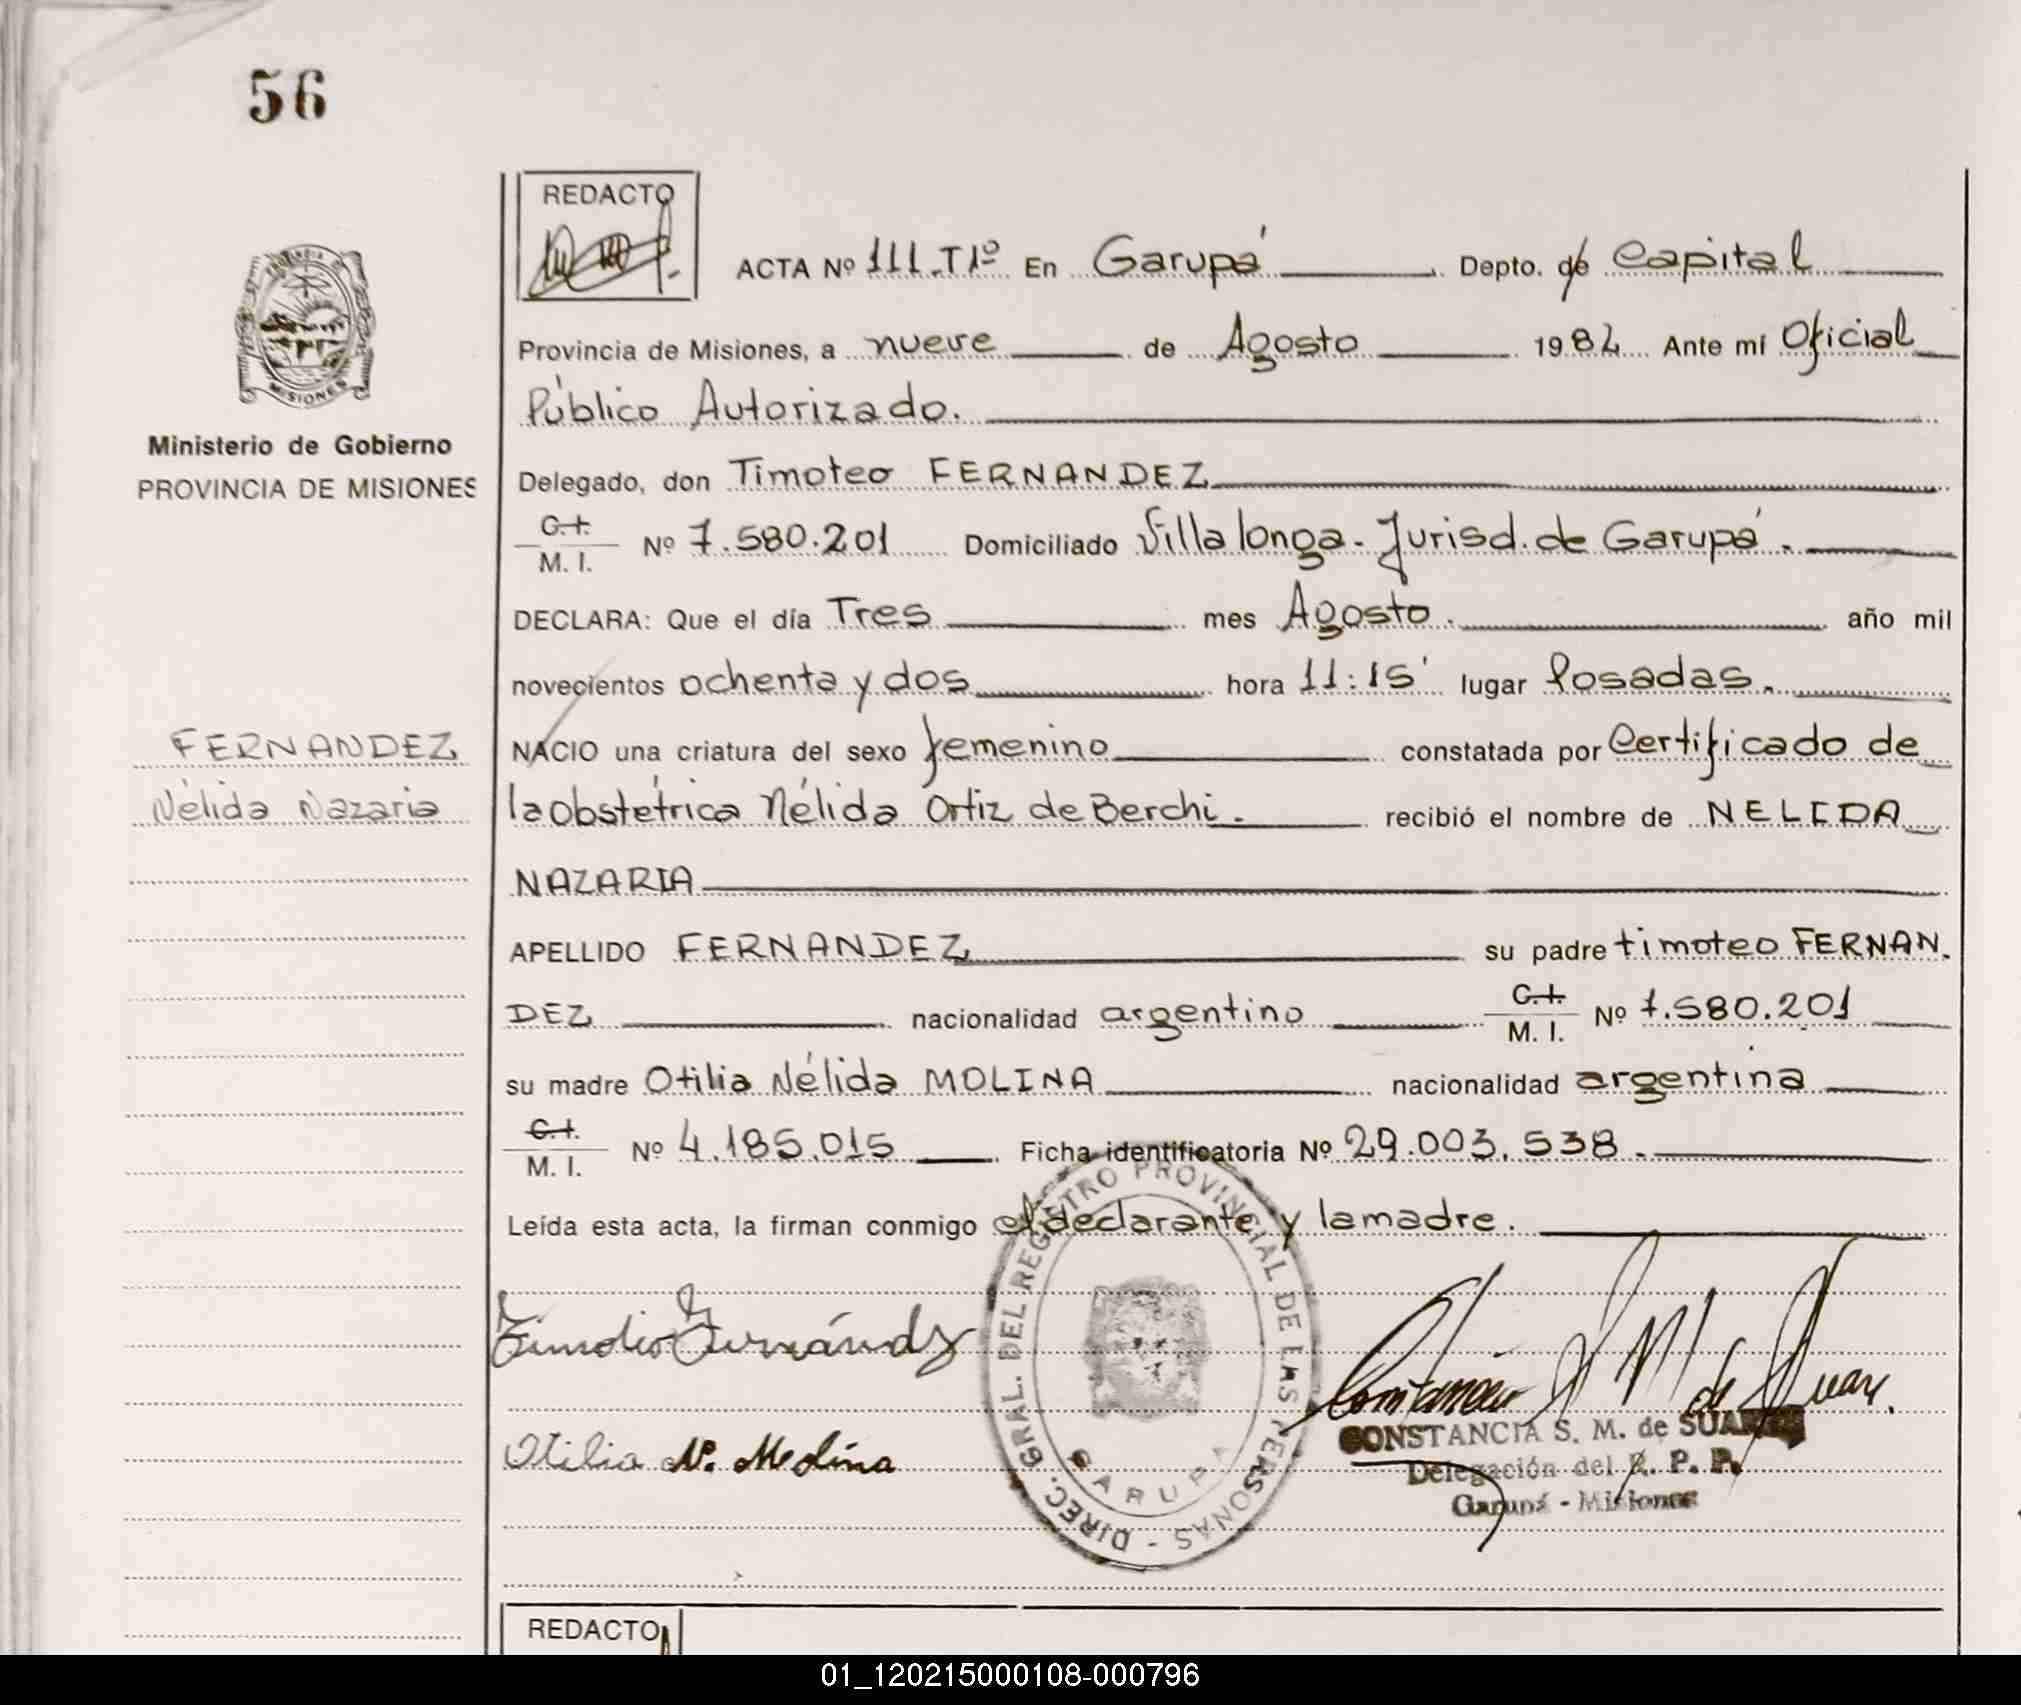 56
REDACTO
ACTA Nº 111.T1º En Garupá Depto. de Capital
MISIONES
Provincia de Misiones, a nueve de Agosto 1982 Ante mí Oficial
Público Autorizado.
Ministerio de Gobierno
PROVINCIA DE MISIONES
Delegado, don Timoteo FERNANDEZ
C.I.
M. I. Nº 7.580.201 Domiciliado Villalonga - Jurisd. de Garupá.
DECLARA: Que el día Tres mes Agosto. año mil
novecientos ochenta y dos hora 11:15' lugar Posadas.
FERNANDEZ
Nélida Nazaria
NACIO una criatura del sexo femenino constatada por Certificado de
la Obstétrica Nélida Ortiz de Berchi. recibió el nombre de NELIDA
NAZARIA
APELLIDO FERNANDEZ su padre timoteo FERNAN.
DEZ nacionalidad argentino C.I. M. I. Nº 7.580.201
su madre Otilia Nélida MOLINA nacionalidad argentina
C.I.
M. I. Nº 4.185.015 Ficha identificatoria Nº 29.003.538.
Leída esta acta, la firman conmigo el declarante y la madre.
DIREC. GRAL. DEL REGISTRO PROVINCIAL DE LAS PERSONAS -
GARUPA
Timoteo Fernández
Otilia N. Molina
Constancia S M de Suarez.
CONSTANCIA S. M. de SUAREZ
Delegación del R. P. P.
Garupá - Misiones
REDACTO
01_120215000108-000796